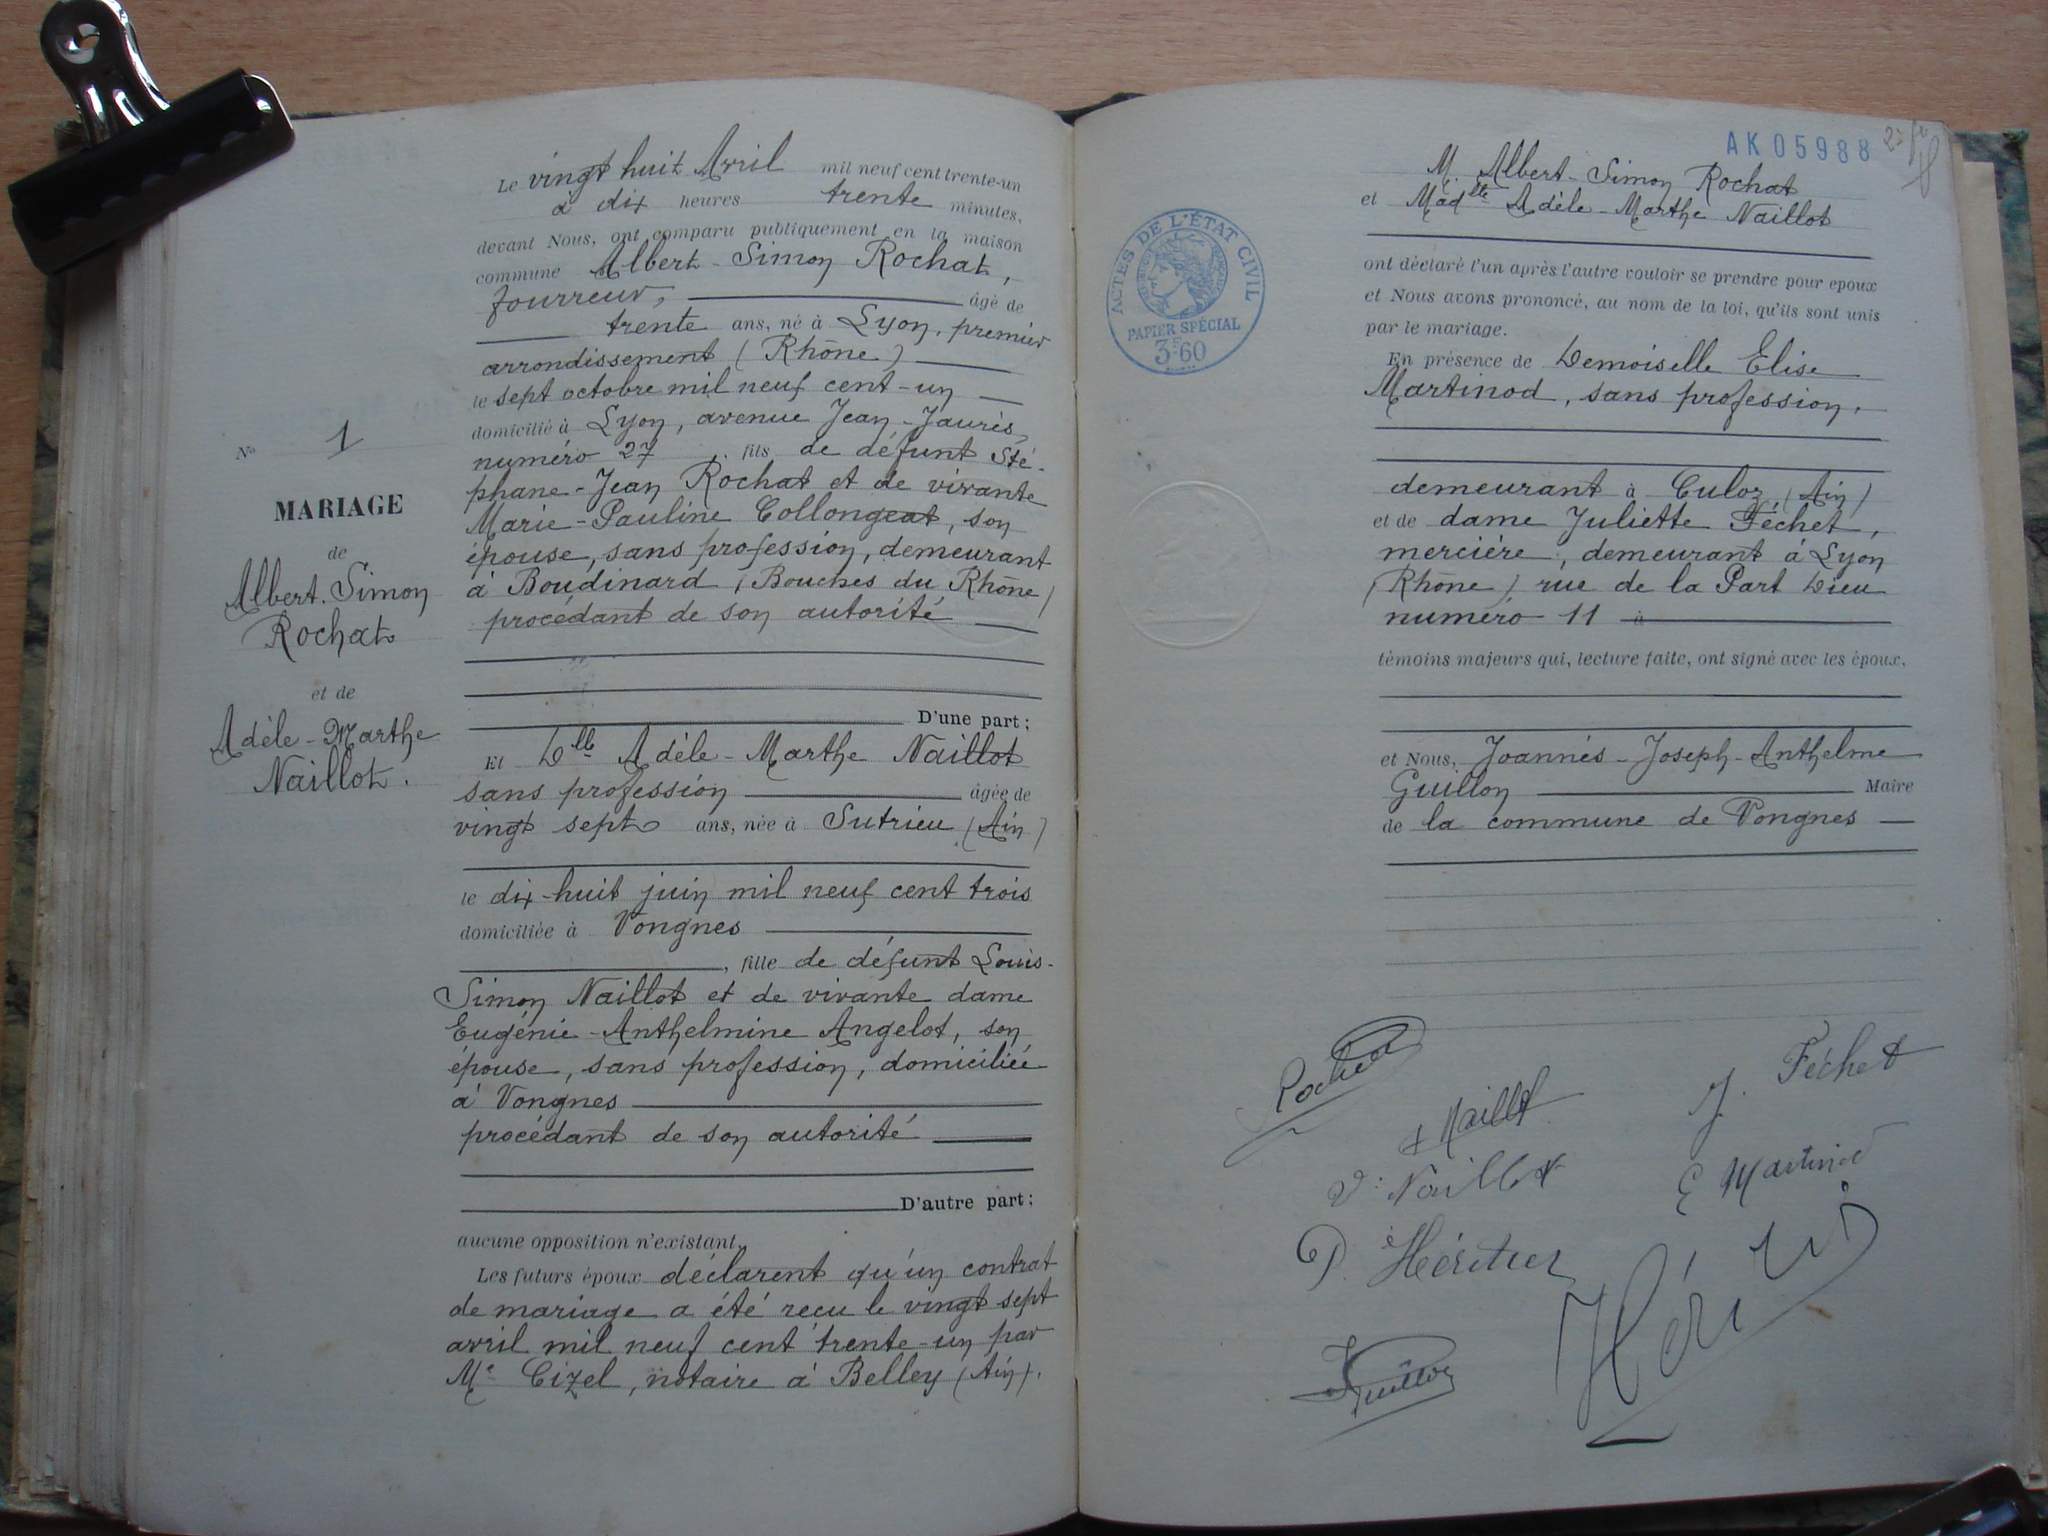 Nº 1
MARIAGE
de
Albert-Simon
Rochat
et de
Adèle-Marthe
Naillot.
Le vingt huit Avril mil neuf cent trente-un
à dix heures trente minutes,
devant Nous, ont comparu publiquement en la maison
commune Albert-Simon Rochat,
fourreur, âgé de
trente ans, né à Lyon, premier
arrondissement (Rhône)
le sept octobre mil neuf cent-un
domicilié à Lyon, avenue Jean-Jaurès,
numéro 27, fils de défunt Sté-
phane-Jean Rochat et de vivante
Marie-Pauline Collongeat, son
épouse, sans profession, demeurant
à Boudinard (Bouches du Rhône)
procédant de son autorité
D'une part;
Et Dlle Adèle-Marthe Naillot
sans profession âgée de
vingt sept ans, née à Sutrieu (Ain)
le dix-huit juin mil neuf cent trois
domiciliée à Vongnes
, fille de défunt Louis-
Simon Naillot et de vivante dame
Eugénie-Anthelmine Angelot, son
épouse, sans profession, domiciliée
à Vongnes
procédant de son autorité
D'autre part;
aucune opposition n'existant.
Les futurs époux déclarent qu'un contrat
de mariage a été reçu le vingt-sept
avril mil neuf cent trente-un par
Me Cizel, notaire à Belley (Ain).
AK 05988
M. Albert-Simon Rochat
et Madlle Adèle-Marthe Naillot
ACTES DE L'ÉTAT CIVIL
PAPIER SPÉCIAL
3F60
ont déclaré l'un après l'autre vouloir se prendre pour époux
et Nous avons prononcé, au nom de la loi, qu'ils sont unis
par le mariage.
En présence de Demoiselle Elise
Martinod, sans profession,
demeurant à Culoz (Ain)
et de dame Juliette Féchet,
mercière, demeurant à Lyon
(Rhône) rue de la Part Dieu
numéro 11 à
témoins majeurs qui, lecture faite, ont signé avec les époux,
et Nous, Joannés-Joseph-Anthelme
Guillon Maire
de la commune de Vongnes
Rochat
J. Féchet
A Naillot
V. Naillot
E Martinod
P. Héritier
Guillon